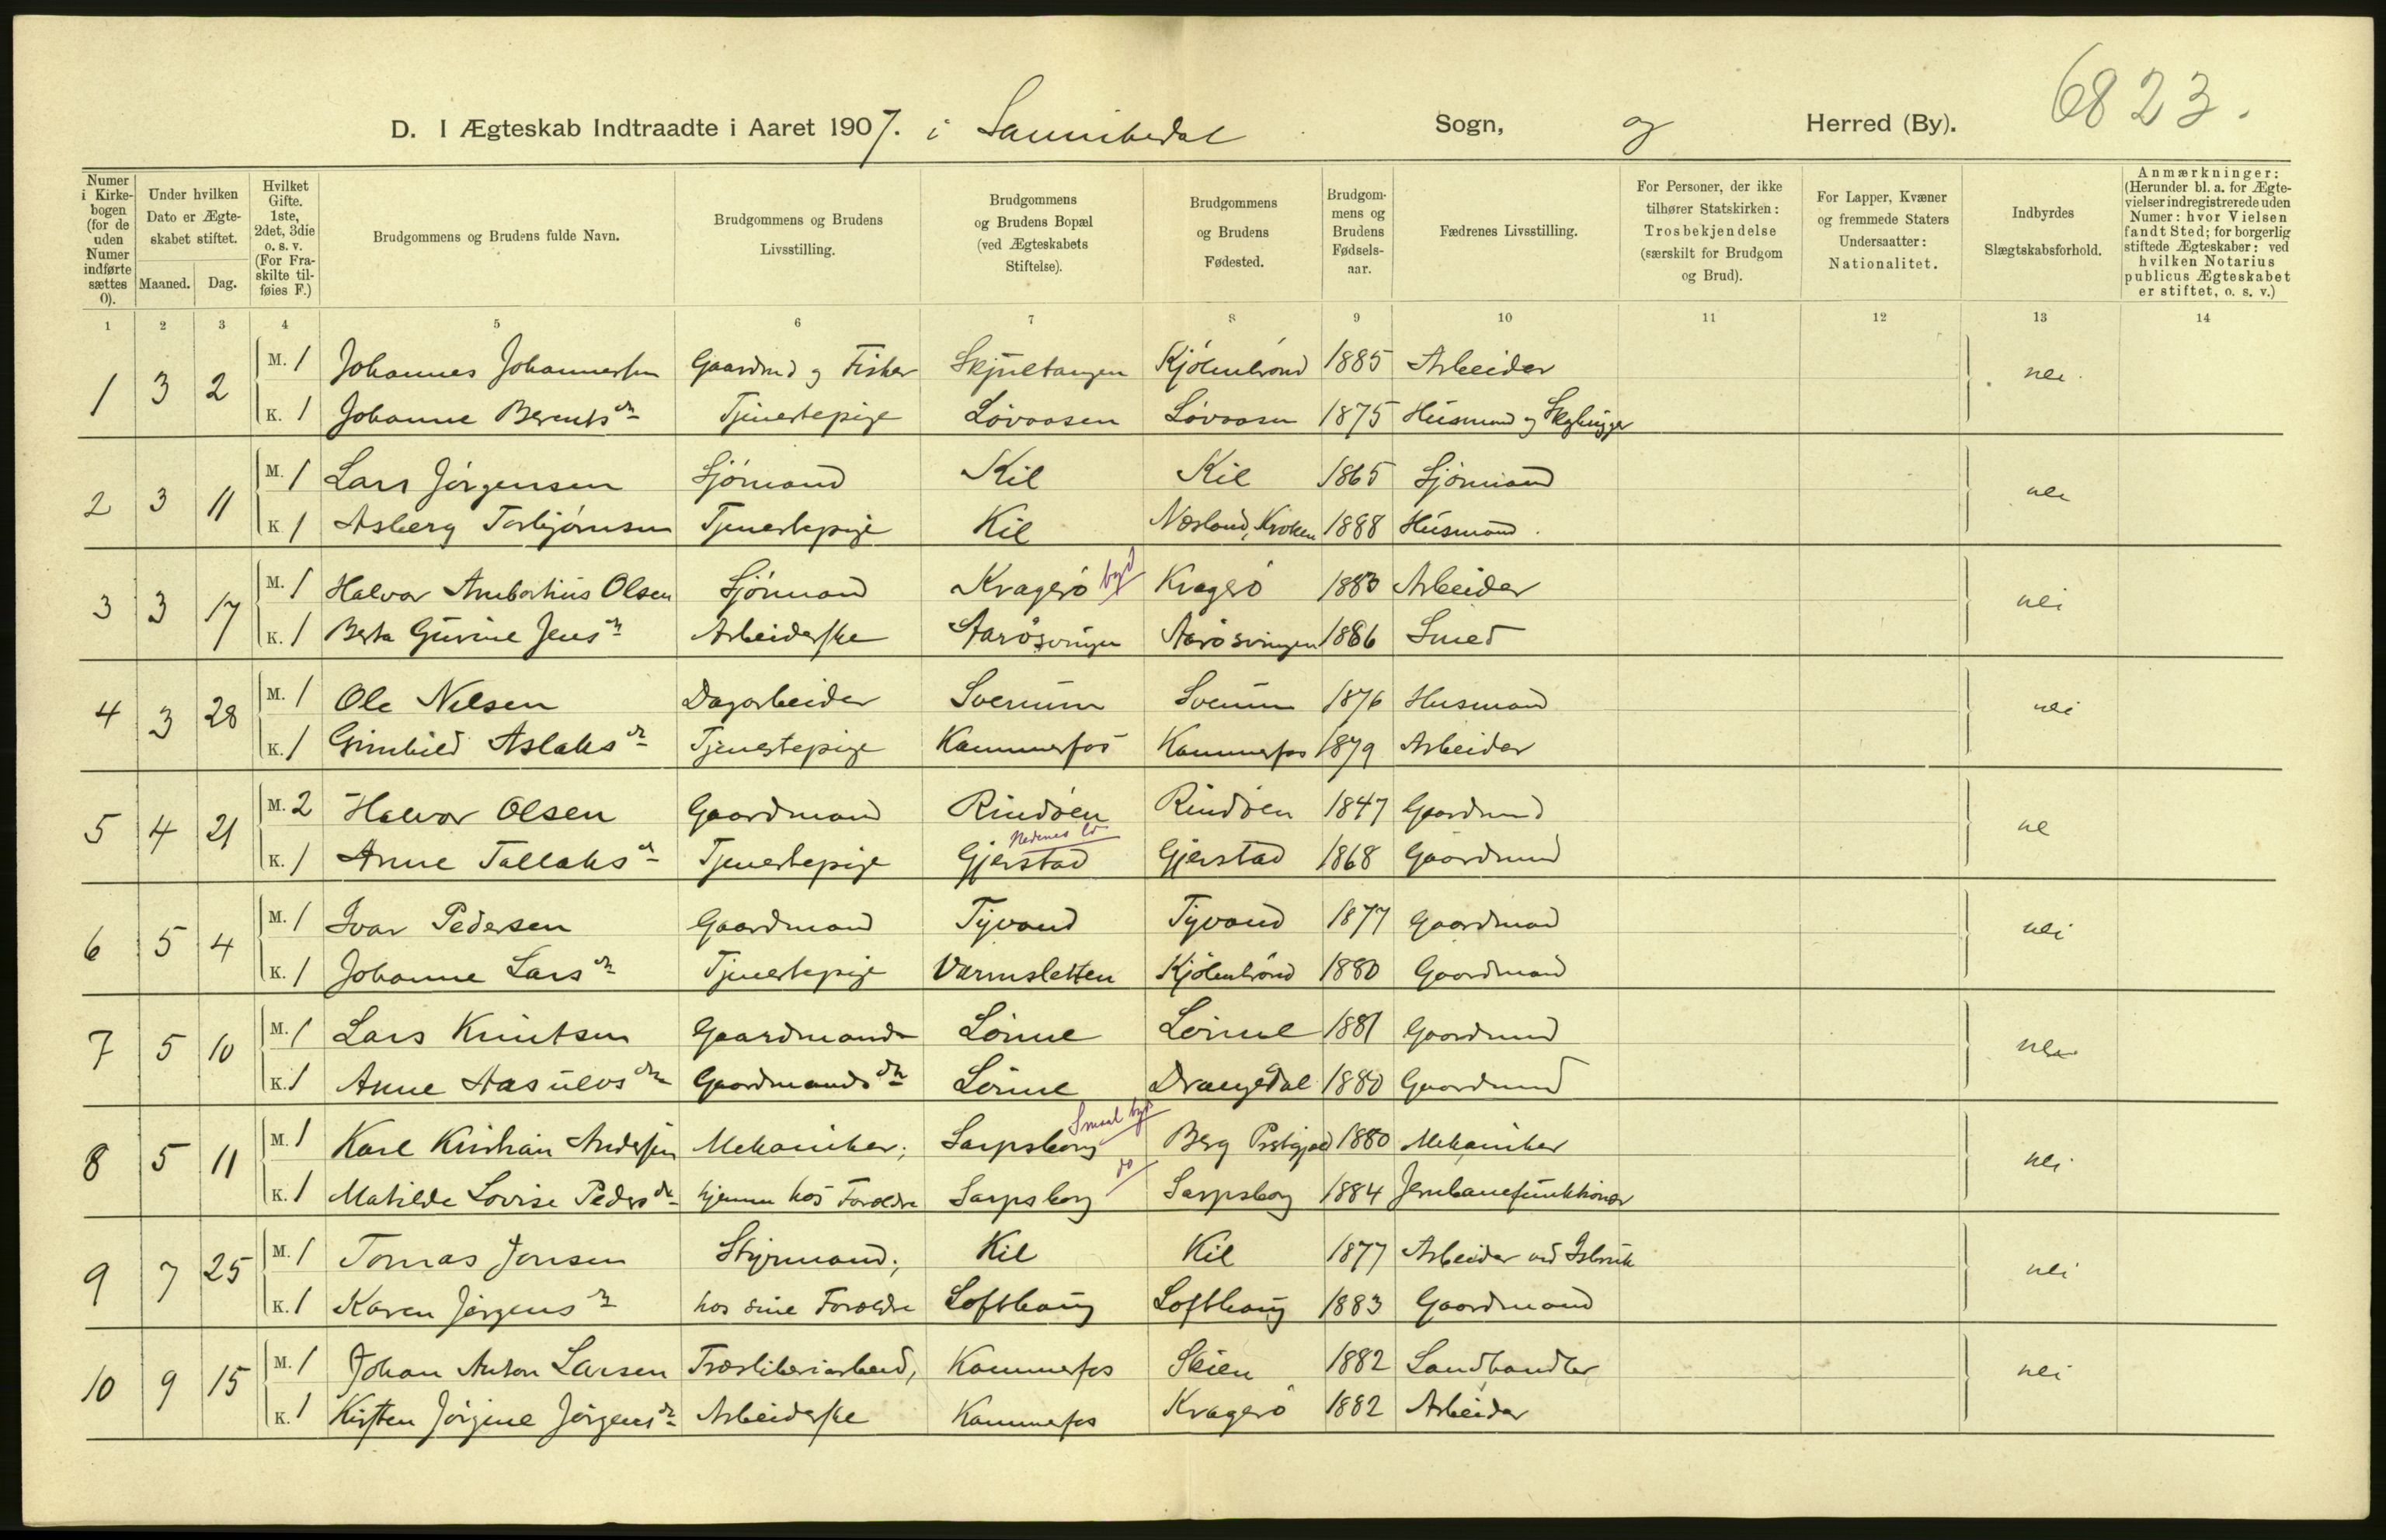 6823.
D. I Ægteskab Indtraadte i Aaret 1907. i Sannikedal Sogn, og Herred (By).
Numer i Kirkebogen (for de uden Numer indførte sættes 0).
Under hvilken Dato er Ægteskabet stiftet.
Maaned. Dag.
Hvilket Gifte. 1ste, 2det, 3die o. s. v. (For Fraskilte tilføies F.)
Brudgommens og Brudens fulde Navn.
Brudgommens og Brudens Livsstilling.
Brudgommens og Brudens Bopæl (ved Ægteskabets Stiftelse).
Brudgommens og Brudens Fødested.
Brudgommens og Brudens Fødselsaar.
Fædrenes Livsstilling.
For Personer, der ikke tilhører Statskirken: Trosbekjendelse (særskilt for Brudgom og Brud).
For Lapper, Kvæner og fremmede Staters Undersaatter: Nationalitet.
Indbyrdes Slægtskabsforhold.
Anmærkninger: (Herunder bl. a. for Ægtevielser indregistrerede uden Numer: hvor Vielsen fandt Sted; for borgerlig stiftede Ægteskaber: ved hvilken Notarius publicus Ægteskabet er stiftet, o. s. v.)
1 2 3 4 5 6 7 8 9 10 11 12 13 14
1 3 2 M. 1 Johannes Johannessen Gaardmd og Fisker Skjultangen Kjölenbrönd 1885 Arbeider nei
K. 1 Johanne Berentsdr Tjenestepige Lövaasen Lövaasen 1875 Husmand og Skybygger
2 3 11 M. 1 Lars Jörgensen Sjömand Kil Kil 1865 Sjömand nei
K 1 Asberg Torbjörnsen Tjenestepige Kil Næsland, Kroken 1888 Husmand.
3 3 17 M. 1 Halvor Olsen Sjömand Kragerö byd Kragerö 1883 Arbeider nei
K. 1 Berta Gurine Jensdr Arbeiderske Aarösvingen Aarösvingen 1886 Smed
4 3 28 M. 1 Ole Nilsen Dagarbeider Svenum Svenum 1876 Husmand nei
K. 1 Gunhild Aslaksdr Tjenestepige Kammerfos Kammerfos 1879 Arbeider
5 4 21 M. 2 Halvor Olsen Gaardmand Rindöen Rindöen 1847 Gaardmd nei
Nedenes
K. 1 Anne Tallaksdr Tjenestepige Gjerstad Gjerstad 1868 Gaardmand
6 5 4 M. 1 Ivar Pedersen Gaardmand Tyvand Tyvand 1877 Gaardmand nei
K. 1 Johanne Larsdr Tjenestepige Varmsletten Kjölenbrönd 1880 Gaardmand
7 5 10 M. 1 Lars Knutsen Gaardmand Lönne Lönne 1881 Gaardmand nei
K. 1 Anne Aasulvsdr Gaardmandsdr Lönne Drangedal 1880 Gaardmand
Smaal byd
8 5 11 M. 1 Karl Kristian Andersen Mekaniker; Sarpsborg Berg Prstgjæld 1880 Mekaniker nei
do
K. 1 Matilde Lovise Pedersdr hjemme hos Forældre Sarpsborg Sarpsborg 1884 Jernbanefunktionær
9 7 25 M. 1 Tomas Jonsen Styrmand; Kil Kil 1877 Arbeider ved Isbruk nei
K. 1 Karen Jörgensdr hos sine Forældre Lofthaug Lofthaug 1883 Gaardmand
10 9 15 M. 1 Johan Anton Larsen Træsliberiarbeid, Kammerfos Skien 1882 Landhandler nei
K. 1 Kirsten Jörgine Jörgensdr Arbeiderske Kammerfos Kragerö 1882 Arbeider